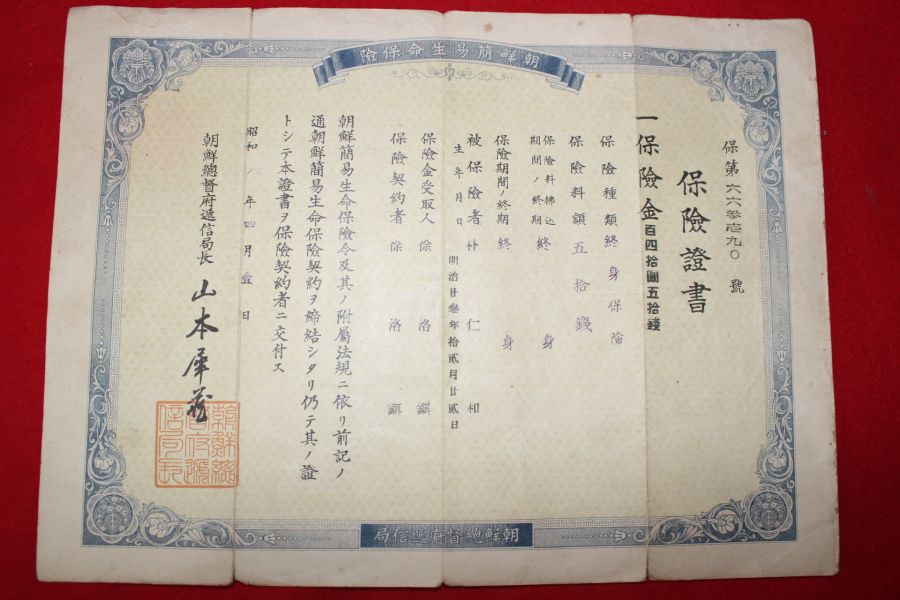 朝鮮簡易生命保險
保第六六参壱九〇號
保險證書
一保險金百四拾圓五拾錢
保險種類終身保險
保險料額五拾錢
保險料拂込期間ノ終期終身
保險期間ノ終期終身
被保險者朴仁相
生年月日明治廿参年拾貳月廿貳日
保險金受取人徐洛鎭
保險契約者徐洛鎭
朝鮮簡易生命保險令及其ノ附屬法規ニ依リ前記ノ
通朝鮮簡易生命保險契約ヲ締結シタリ仍テ其ノ證
トシテ本證書ヲ保險契約者ニ交付ス
昭和八年四月壹日
朝鮮總督府遞信局長山本犀藏
朝鮮總
督府遞
信局長
朝鮮總督府遞信局